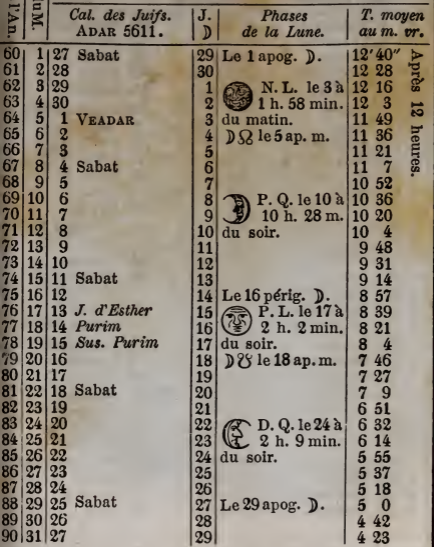 l'An. du M. Cal. des Juifs. ADAR 5611. J. ☽ Phases de la Lune. T. moyen au m. vr.
60 1 27 Sabat 29 Le 1 apog. ☽. 12′40″
61 2 28 30 12 28
62 3 29 1 N. L. le 3 à 12 16
63 4 30 2 1 h. 58 min. 12 3
64 5 1 VEADAR 3 du matin. 11 49
65 6 2 4 ☽☊ le 5 ap. m. 11 36
66 7 3 5 11 21
67 8 4 Sabat 6 11 7
68 9 5 7 10 52
69 10 6 8 P. Q. le 10 à 10 36
70 11 7 9 10 h. 28 m. 10 20
71 12 8 10 du soir. 10 4
72 13 9 11 9 48
73 14 10 12 9 31
74 15 11 Sabat 13 9 14
75 16 12 14 Le 16 périg. ☽. 8 57
76 17 13 J. d'Esther 15 P. L. le 17 à 8 39
77 18 14 Purim 16 2 h. 2 min. 8 21
78 19 15 Sus. Purim 17 du soir. 8 4
79 20 16 18 ☽☋ le 18 ap. m. 7 46
80 21 17 19 7 27
81 22 18 Sabat 20 7 9
82 23 19 21 6 51
83 24 20 22 D. Q. le 24 à 6 32
84 25 21 23 2 h. 9 min. 6 14
85 26 22 24 du soir. 5 55
86 27 23 25 5 37
87 28 24 26 5 18
88 29 25 Sabat 27 Le 29 apog. ☽. 5 0
89 30 26 28 4 42
90 31 27 29 4 23
Après 12 heures.